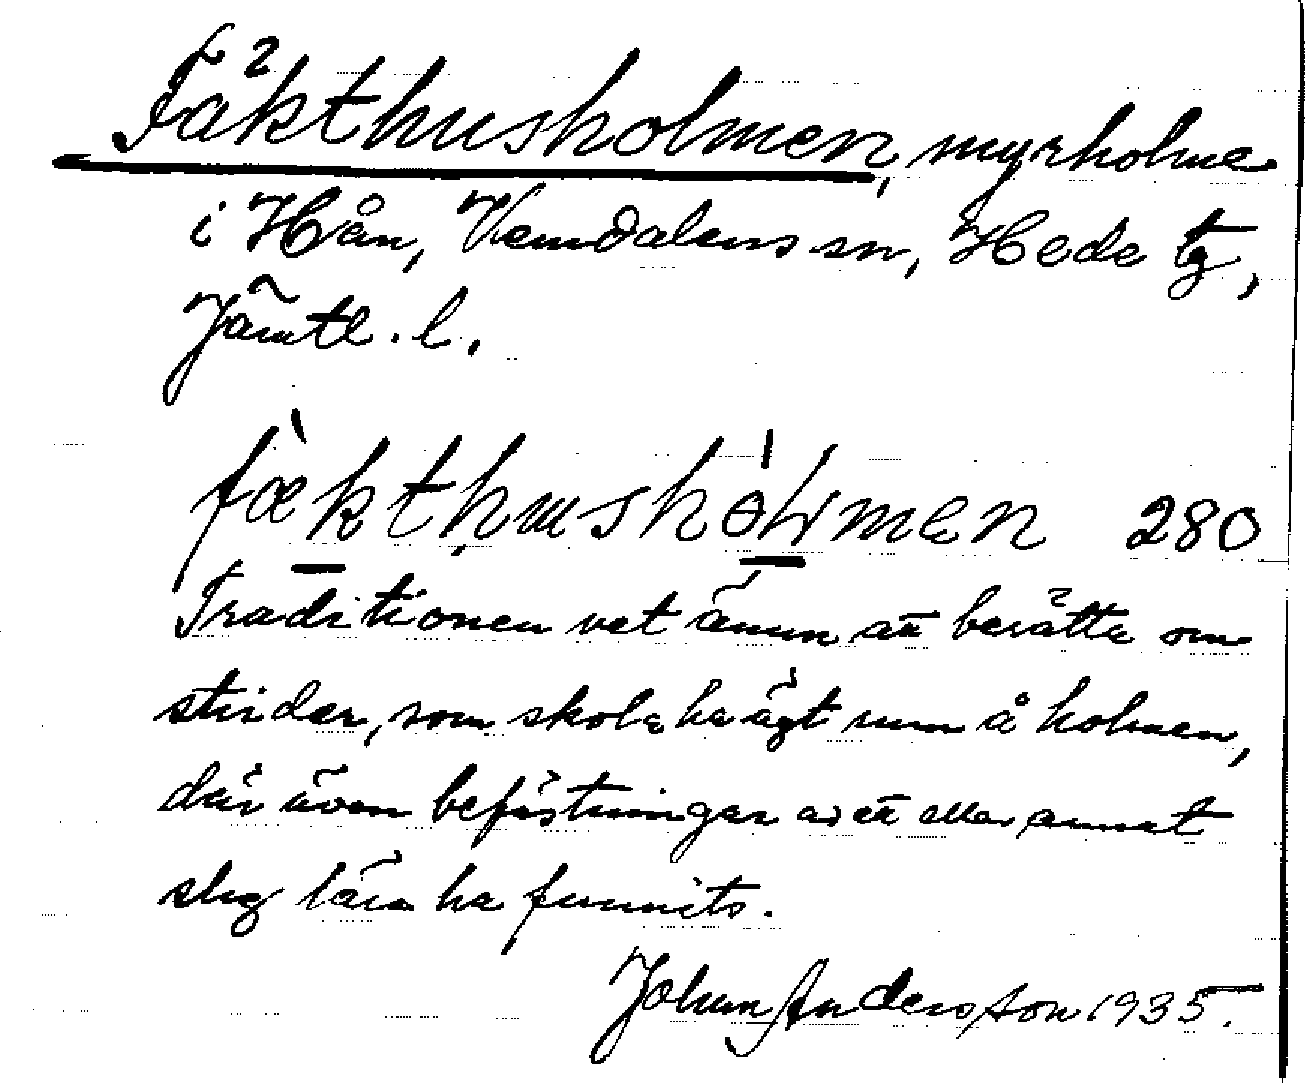 Fäkthusholmen, myrholme
i Hån, Vemdalens sn, Hede tg,
Jämtl. l.
fæ̀kthusho̍lmen 280
Traditionen vet ännu att berätta om
strider, som skola ha ägt rum å holmen,
där även befästningar av ett eller annat
slag lära ha funnits.
Johan Andersson 1935.